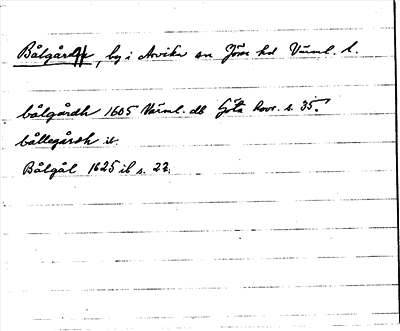 Bålgård, by i Arvika sn Jöss hd Värml. l.
bålgårdh 1605 Värml. db Göta hovr. s. 35.
bållegårdh ib.
Bålgål 1625 ib s. 22.